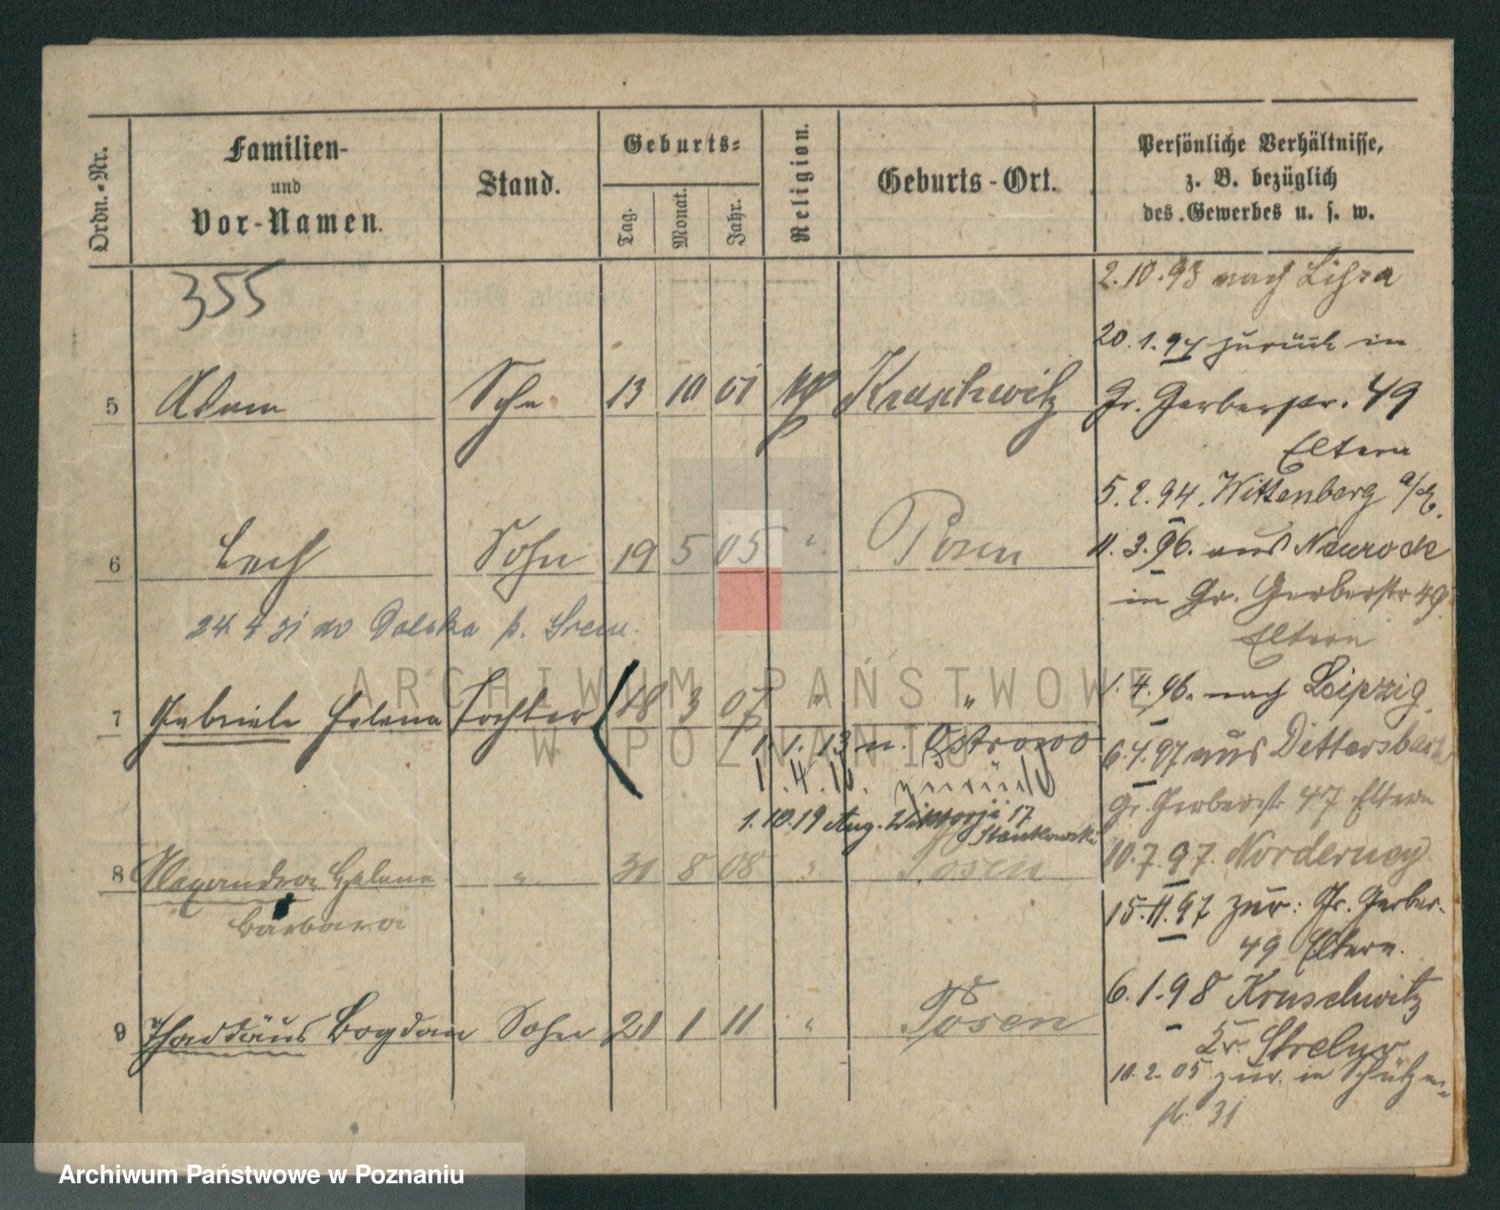 Ordn.-Nr.
Familien-
und
Vor-Namen.
Stand.
Geburts-
Tag.
Monat.
Jahr.
Religion.
Geburts-Ort.
Persönliche Verhältnisse,
z. B. bezüglich
des Gewerbes u. s. w.
355
5 Adam Sohn 13 10 01 Kruschwitz
6 Lech Sohn 19 5 05 " Posen
24. 4 31 do Dolska p. Srem.
7 Gabriele Helena Tochter 18 3 07 " "
1. 1. 13 n. Ostrowo
1. 4. 16. zurück
1.10.19 Aug. Wiktorji 17
Stankowski
8 Alexandra Helene " 31 8 08 " Posen
Barbara
9 Thaddäus Bogdan Sohn 21 1 11 " Posen
2.10.93 nach Lissa
20.1.94 zurück in
Gr. Gerberstr. 49
Eltern
5.2.94. Wittenberg a/E.
11.3.96. aus Naurock
in Gr. Gerberstr 49
Eltern
1.4.96. nach Leipzig.
6.4.97 aus Dittersbach
Gr. Gerberstr 47 Eltern
10.7.97. Norderney
15.11.97 zur: Gr. Gerber-
49 Eltern.
6.1.98 Kruschwitz
Kr. Strelno
10.2.05 zur. in Schützen-
str. 31
ARCHIWUM PAŃSTWOWE
W POZNANIU
Archiwum Państwowe w Poznaniu